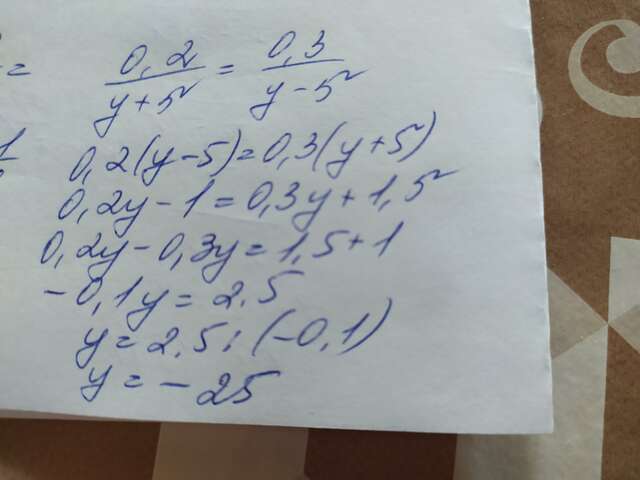 =
0,2/(y+5) = 0,3/(y-5)
1
0,2(y-5)=0,3(y+5)
0,2y-1=0,3y+1,5
0,2y-0,3y=1,5+1
-0,1y=2.5
y=2.5:(-0,1)
y=-25